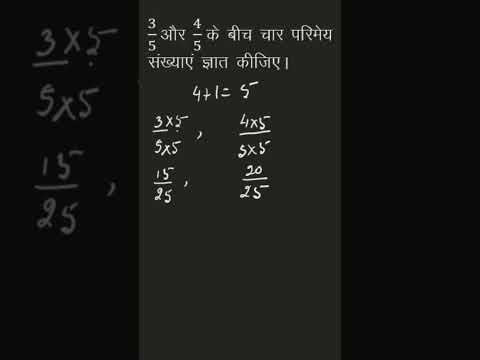 3/5 और 4/5 के बीच चार परिमेय
संख्याएं ज्ञात कीजिए।
4+1= 5
3×5/5×5 , 4×5/5×5
15/25 , 20/25